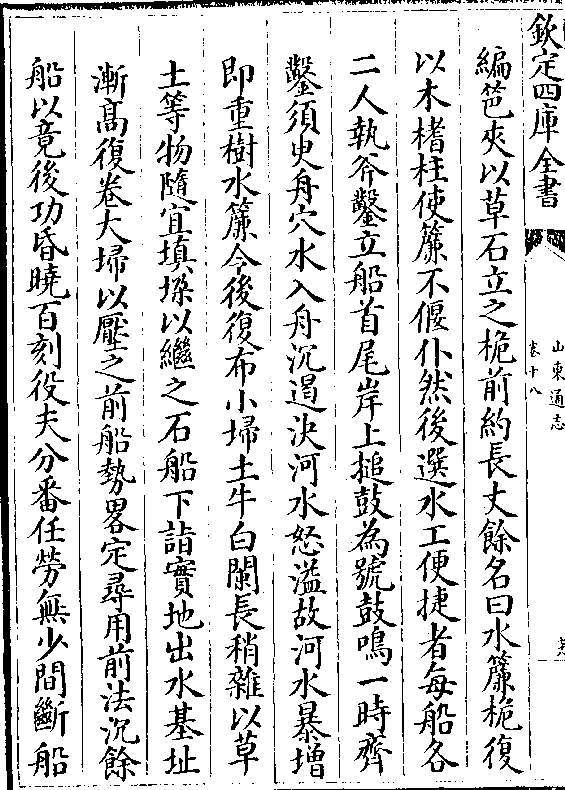 欽定四庫全書
山東通志
卷十八
編笆夾以草石立之桅前約長丈餘名曰水簾桅復
以木楮柱使簾不偃仆然後選水工便捷者每船各
二人執斧鑿立船首尾岸上搥鼓為號鼓鳴一時齊
鑿須臾舟穴水入舟沉遏決河水怒溢故河水暴增
即重樹水簾令後復布小埽土牛白闌長稍雜以草
土等物隨宜填垜以繼之石船下詣實地出水基址
漸髙復卷大埽以壓之前船勢畧定尋用前法沉餘
船以竟後功昏曉百刻役夫分番任勞無少間斷船